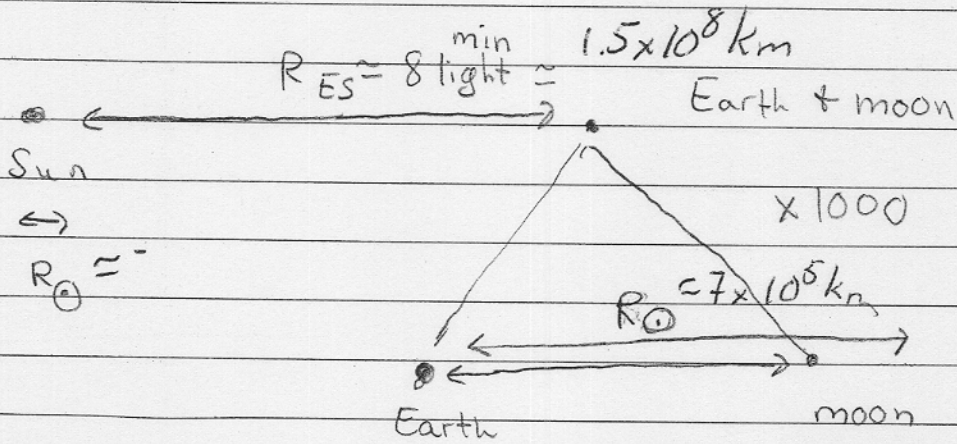 R ES ≃ 8 light min ≃ 1.5x10⁸ km
Earth + moon
Sun
x 1000
R☉ ≃ -
R☉ ≃ 7x10⁵ km
Earth
moon